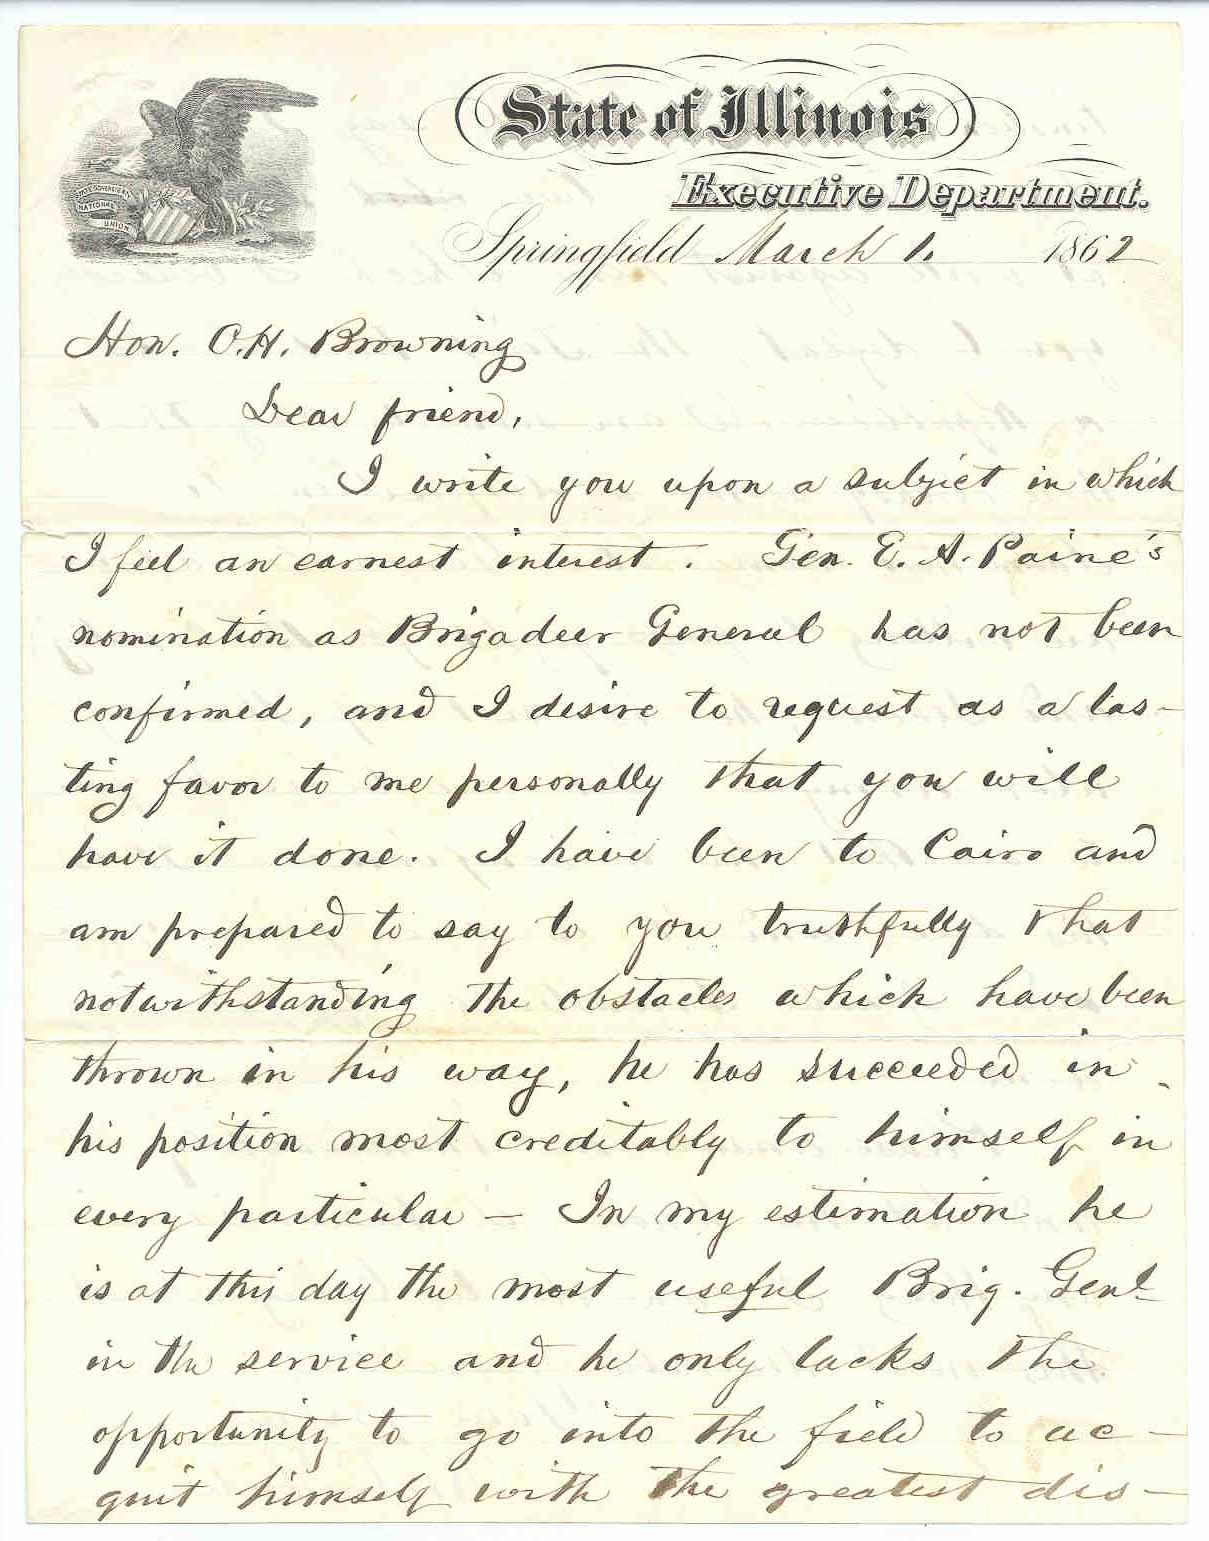 State of Illinois
Executive Department.
STATE SOVEREIGNTY
NATIONAL
UNION
Springfield March 1. 1862
Hon. O. H. Browning
Dear friend,
I write you upon a subject in which
I feel an earnest interest. Gen. E. A. Paine's
nomination as Brigadeer General has not been
confirmed, and I desire to request as a las-
ting favor to me personally that you will
have it done. I have been to Cairo and
am prepared to say to you truthfully that
notwithstanding the obstacles which have been
thrown in his way, he has succeeded in
his position most creditably to himself in
every particular — In my estimation he
is at this day the most useful Brig. Genl
in the service and he only lacks the
opportunity to go into the field to ac-
quit himself with the greatest dis-